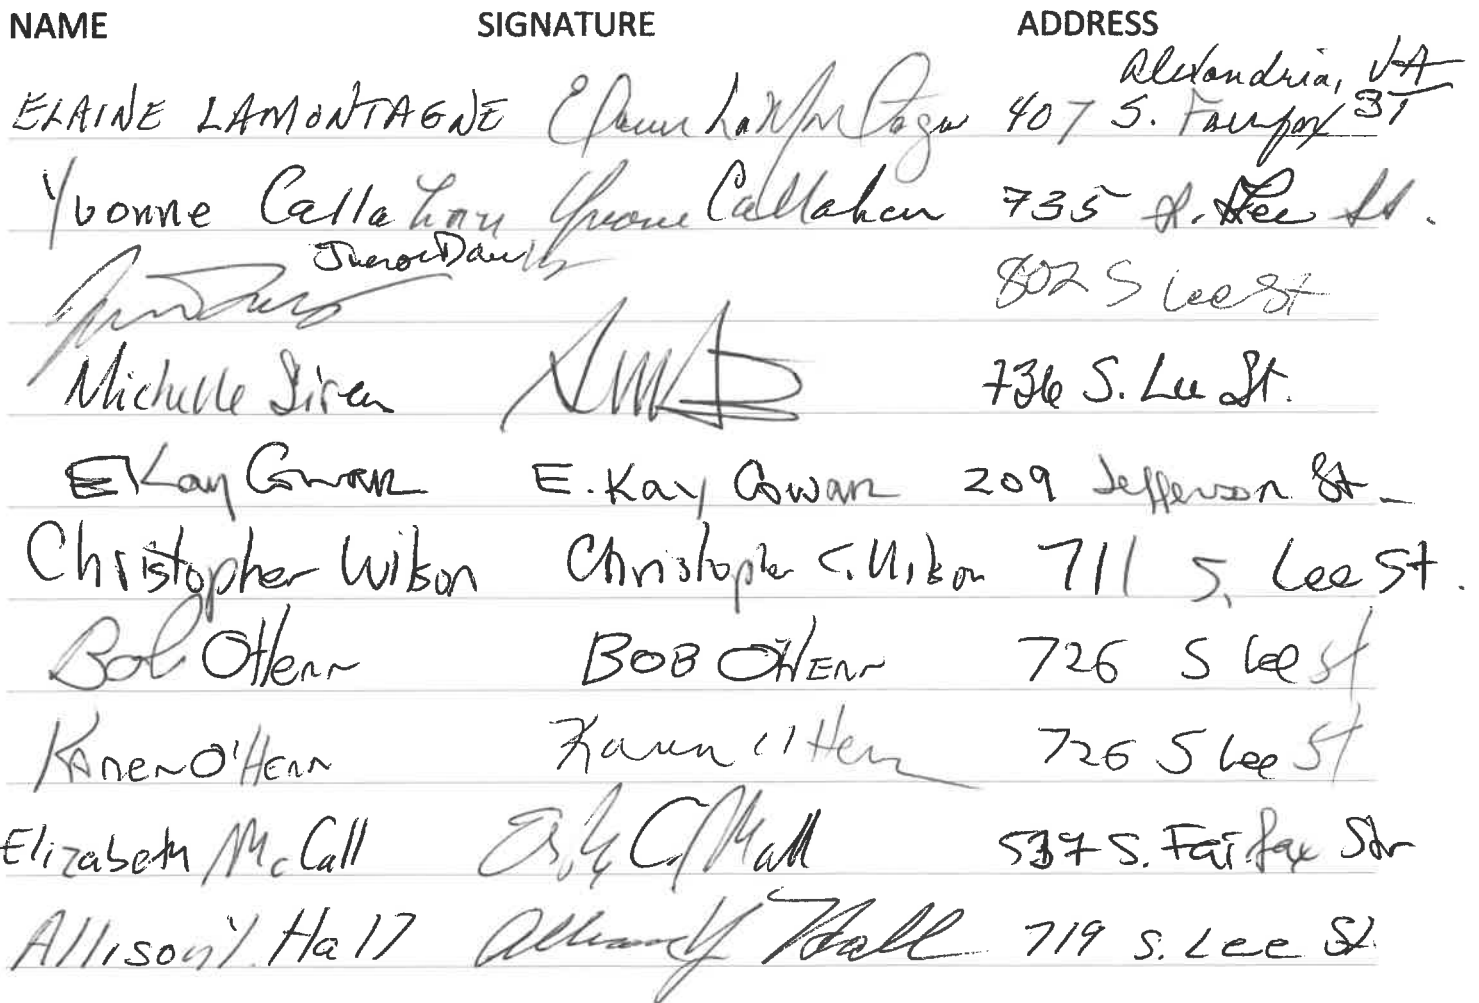 NAME SIGNATURE ADDRESS
Alexandria, VA
ELAINE LAMONTAGNE Elaine LaMontagne 407 S. Fairfax ST
Yvonne Callahan Yvonne Callahan 735 S. Lee St.
802 S Lee St
Michelle 736 S. Lee St.
E Kay Cowan E. Kay Cowan 209 Jefferson St.
Christopher Wilson Christopher C. Wilson 711 S. Lee St.
Bob OHern BOB OHERN 726 S Lee St
KAREN O'HERN Karen O'Hern 726 S Lee St
Elizabeth McCall McCall S. Fairfax Str
Allison Y. Hall Allison Y Hall 719 S. Lee St.